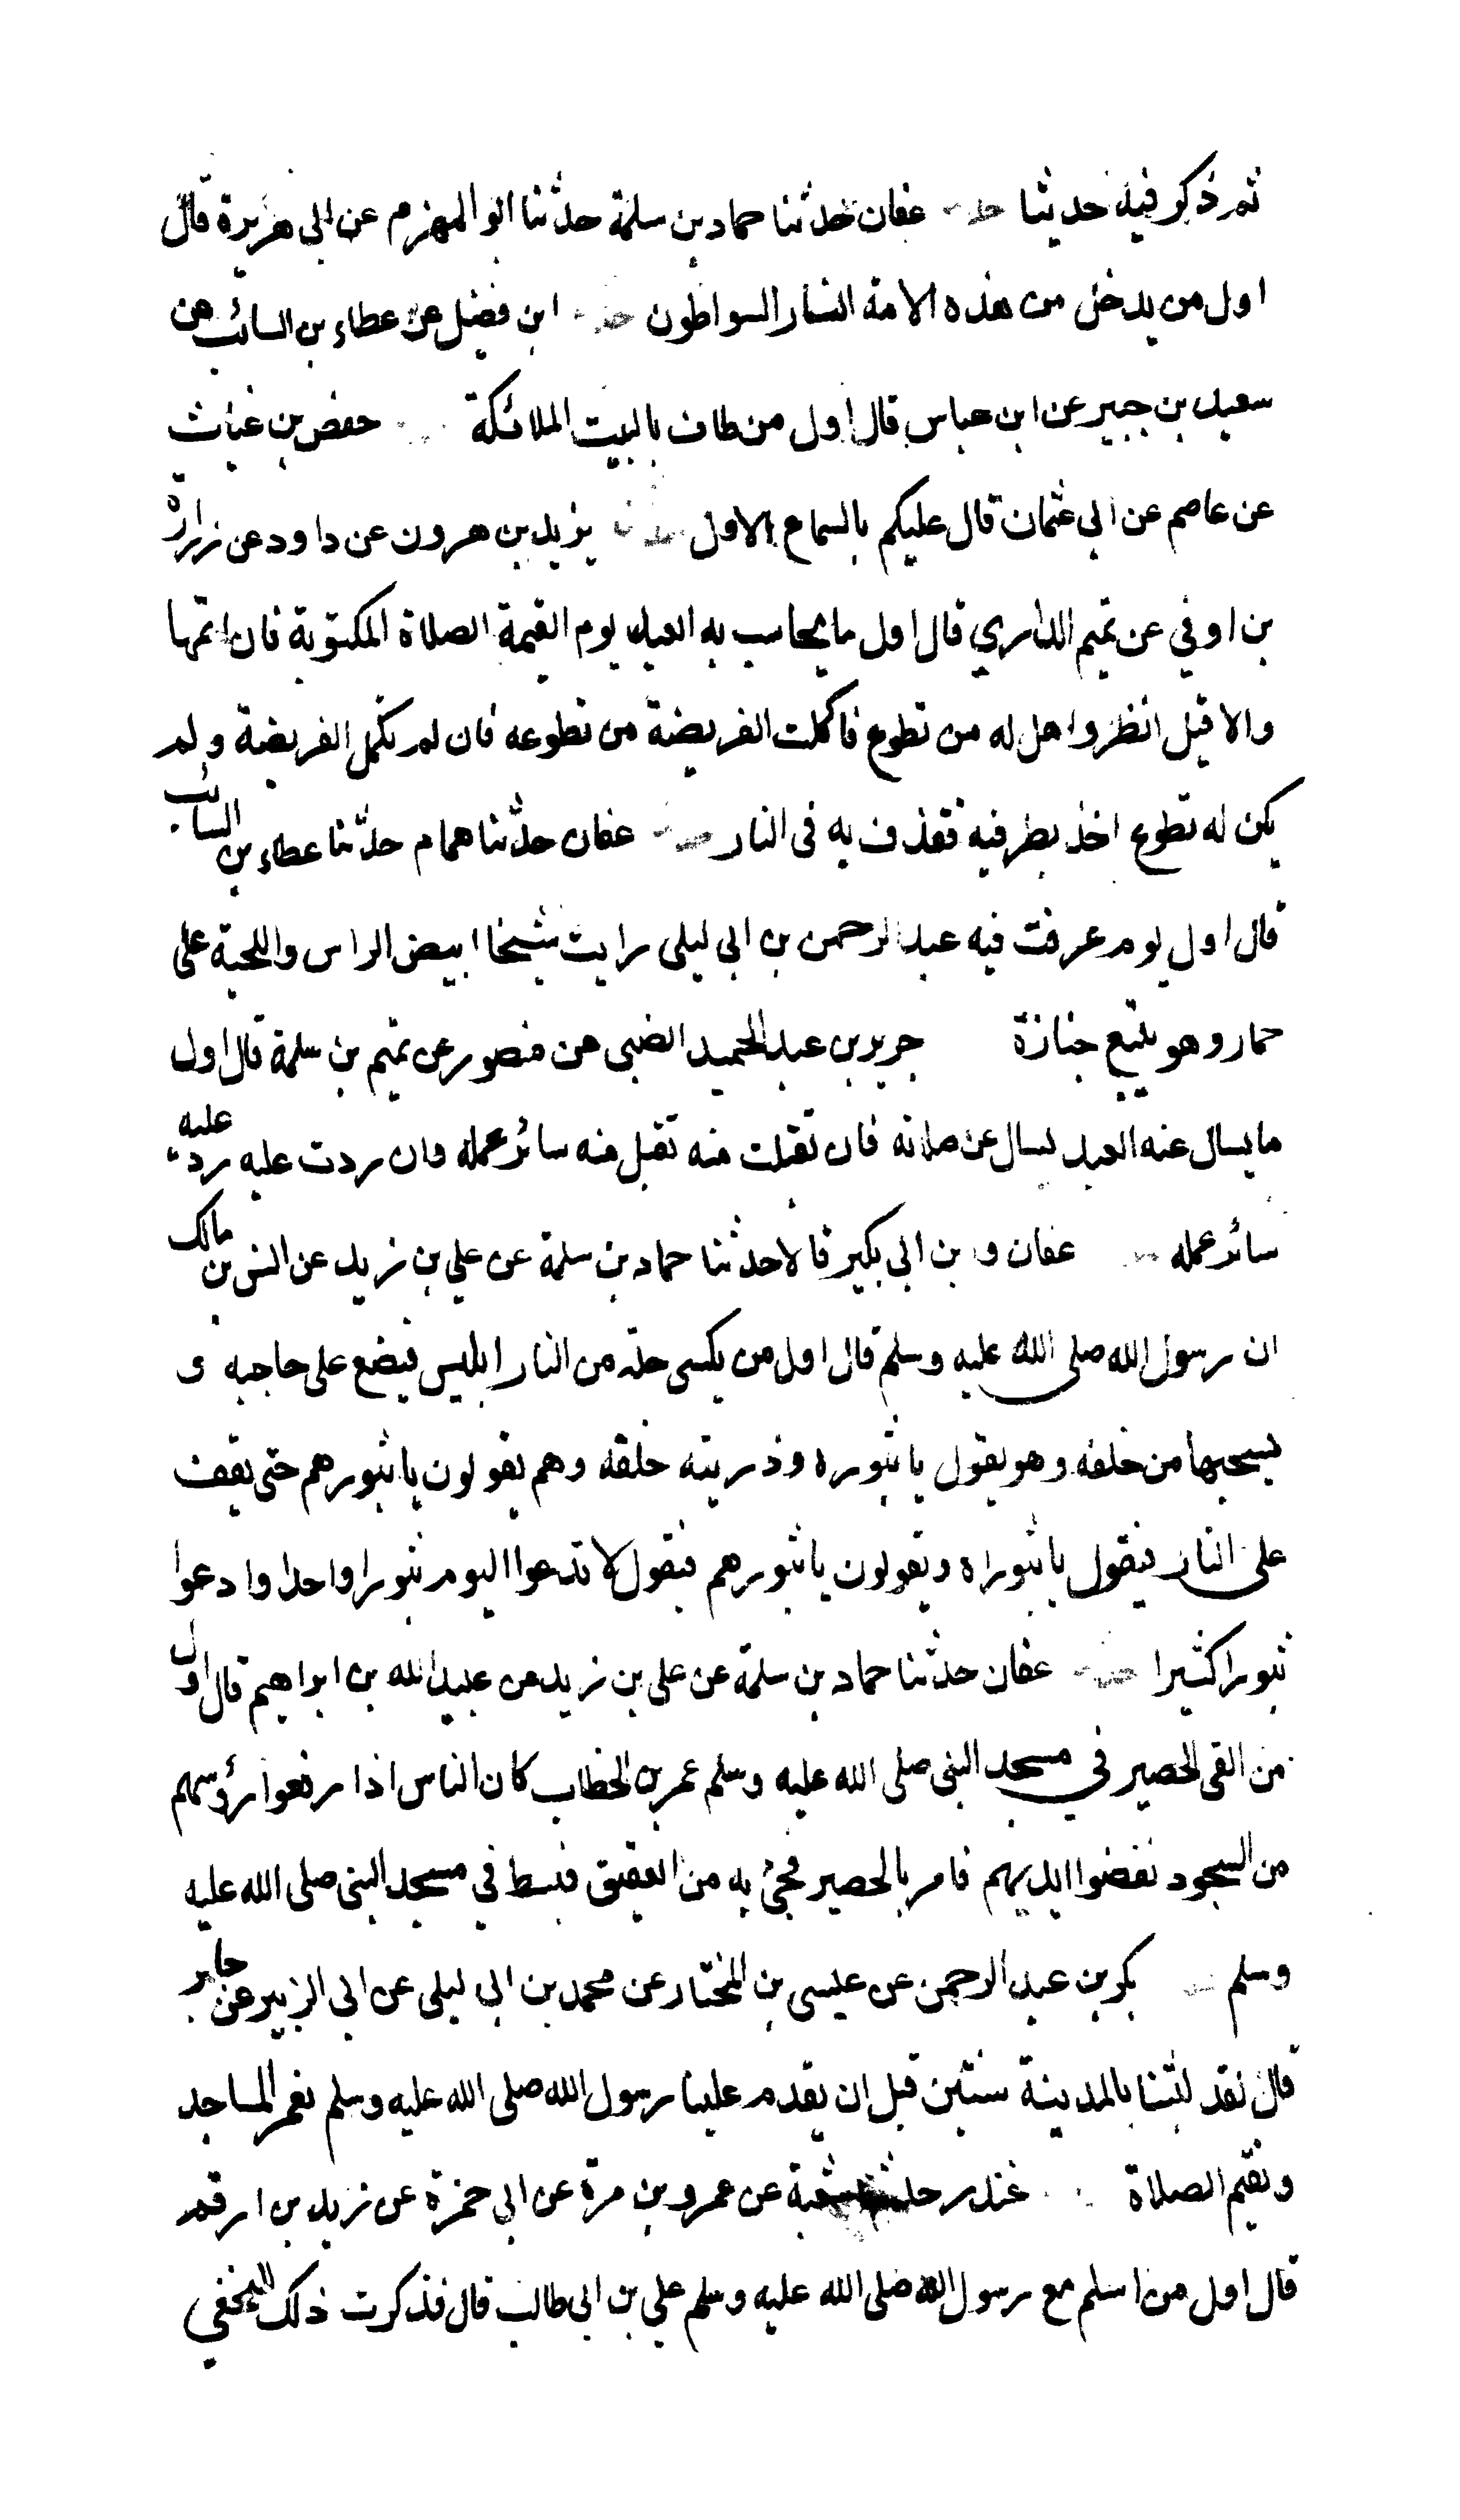 ثم ذكر فيه حديثا عفان حدثنا حماد بن سلمة حدثنا ابو المهزم عن ابى هريرة قال
اول من يدخل من هذه الامة النار السواطون ابن فضيل عن عطاء بن السائب عن
سعيد بن جبير عن ابن عباس قال اول من طاف بالبيت الملائكة حفص بن غياث
عن عاصم عن ابي عثمان قال عليكم بالسماع الاول يزيد بن هرون عن داود عن زرارة
بن اوفي عن تميم الداري قال اول ما يحاسب به العبد يوم القيمة الصلاة المكتوبة فان اتمها
والا قيل انظروا هل له من تطوع فاكملت الفريضة من تطوعه فان لم تكمل الفريضة ولم
يكن له تطوع اخذ بطرفيه فقذف به فى النار عفان حدثنا همام حدثنا عطاء بن السائب
قال اول يوم عرفت فيه عبد الرحمن بن ابى ليلى رايت شيخا ابيض الراس واللحية على
حمار وهو يتبع جنازة جرير بن عبد الحميد الضبى عن منصور عن تميم بن سلمة قال اول
ما يسال عنه العبد يسال عن صلاته فان تقبلت منه تقبل منه سائر عمله وان ردت عليه رد عليه
سائر عمله عفان و بن ابي بكير قالا حدثنا حماد بن سلمة عن علي بن زيد عن انس بن مالك
ان رسول الله صلى الله عليه وسلم قال اول من يكسى حلة من النار ابليس فيضع على حاجبه و
يسحبها من خلفه وهو يقول يا ثبوره وذريته خلفه وهم يقولون يا ثبورهم حتى يقف
على النار فيقول يا ثبوراه ويقولون يا ثبورهم فيقول لا تدعوا اليوم ثبورا واحدا وادعوا
ثبورا كثيرا عفان حدثنا حماد بن سلمة عن على بن زيد عن عبيد الله بن ابراهيم قال اول
من القى الحصير في مسجد النبى صلى الله عليه وسلم عمر بن الخطاب كان الناس اذا رفعوا رؤسهم
من السجود نفضوا ايديهم فامر بالحصير فجئ به من العقيق فبسط في مسجد النبى صلى الله عليه
وسلم بكر بن عبد الرحمن عن عيسى بن المختار عن محمد بن ابي ليلى عن ابي الزبير عن جابر
قال لقد لبثنا بالمدينة سنتين قبل ان يقدم علينا رسول الله صلى الله عليه وسلم نعمر المساجد
ونقيم الصلاة غندر شعبة عن عمرو بن مرة عن ابي حمزة عن زيد بن ارقم
قال اول من اسلم مع رسول الله صلى الله عليه وسلم علي بن ابى طالب قال فذكرت ذلك للنخعي